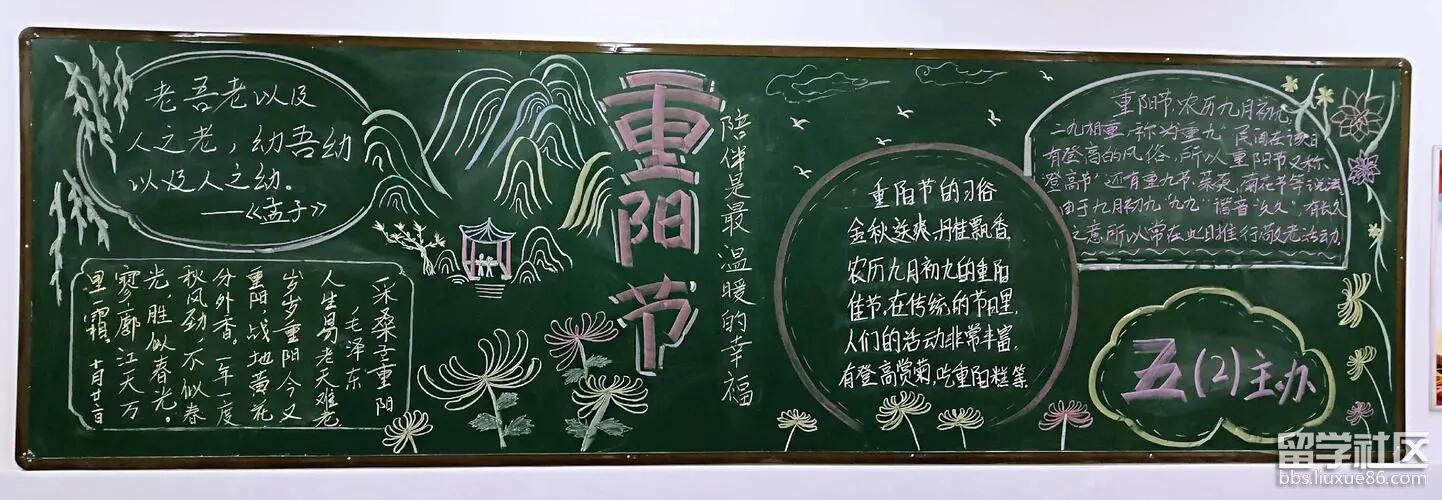 老吾老以及
人之老，幼吾幼
以及人之幼。
——《孟子》
采桑子重阳
毛泽东
人生易老天难老
岁岁重阳，今又
重阳，战地黄花
分外香。一年一度
秋风劲，不似春
光，胜似春光。
寥廓江天万
里霜。十月廿一日
重阳节
陪伴是最温暖的幸福
重阳节的习俗
金秋送爽，丹桂飘香，
农历九月初九的重阳
佳节，在传统的节日里，
人们的活动非常丰富，
有登高赏菊，吃重阳糕等。
重阳节，农历九月初九，
二九相重，称为"重九"民间在该日
有登高的风俗，所以重阳节又称
"澄高节"还有重九节，茱萸，菊花节等说法
由于九月初九"九九"谐音"久久"，有长久
之意所以常在此日推行敬老活动
五(2)主办
留学社区
bbs.liuxue86.com